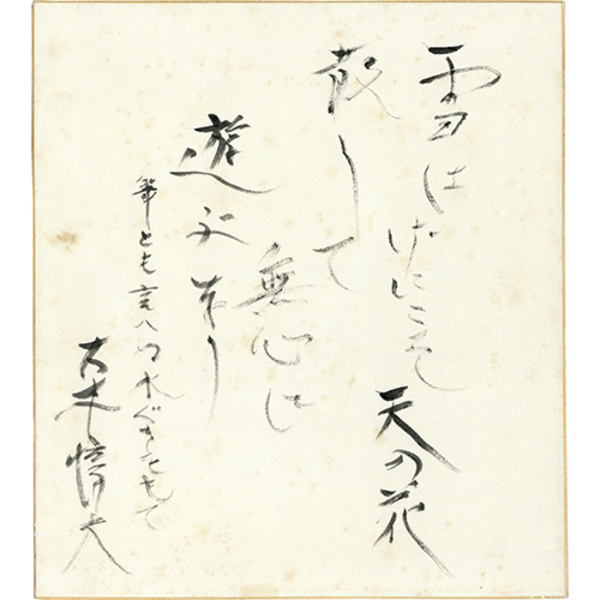 雪はげにこそ
天の花
散して
無心に
遊ふなり
筆とも言へぬ水ぐきをもて
大木惇夫